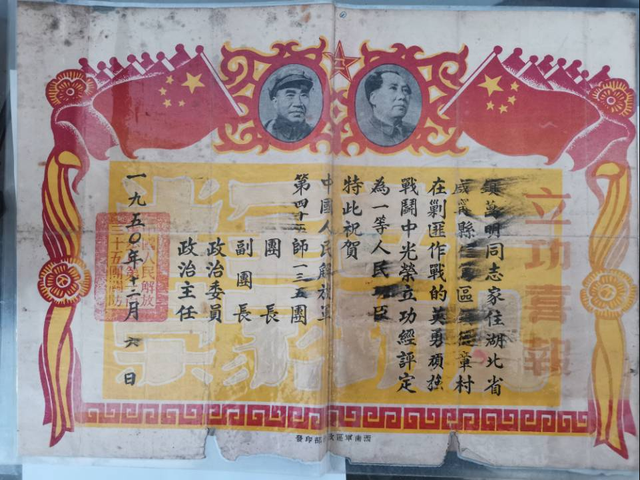 立功喜報
萬明同志家住湖北省
縣區章村
在剿匪作戰的英勇頑强
戰鬭中光榮立功經評定
為一等人民臣
特此祝賀
中國人民解放軍
第四十五師一三五團
團長
副團長
政治委員
政治主任
一九五〇年十二月六日
國人民解放
三十五團
西南軍區政部印發